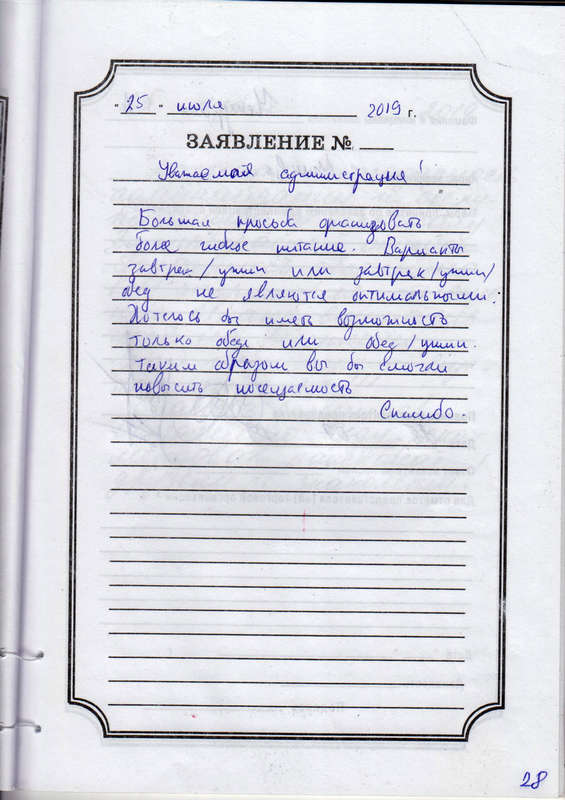 "25" июля 2019 г.
ЗАЯВЛЕНИЕ №
Уважаемая администрация!
Большая просьба организовать
более гибкое питание. Варианты
завтрак/ужин или завтрак/ужин/
обед не являются оптимальными.
Хотелось бы иметь возможность
только обед или обед/ужин.
Таким образом вы бы смогли
повысить посещаемость
Спасибо.
28